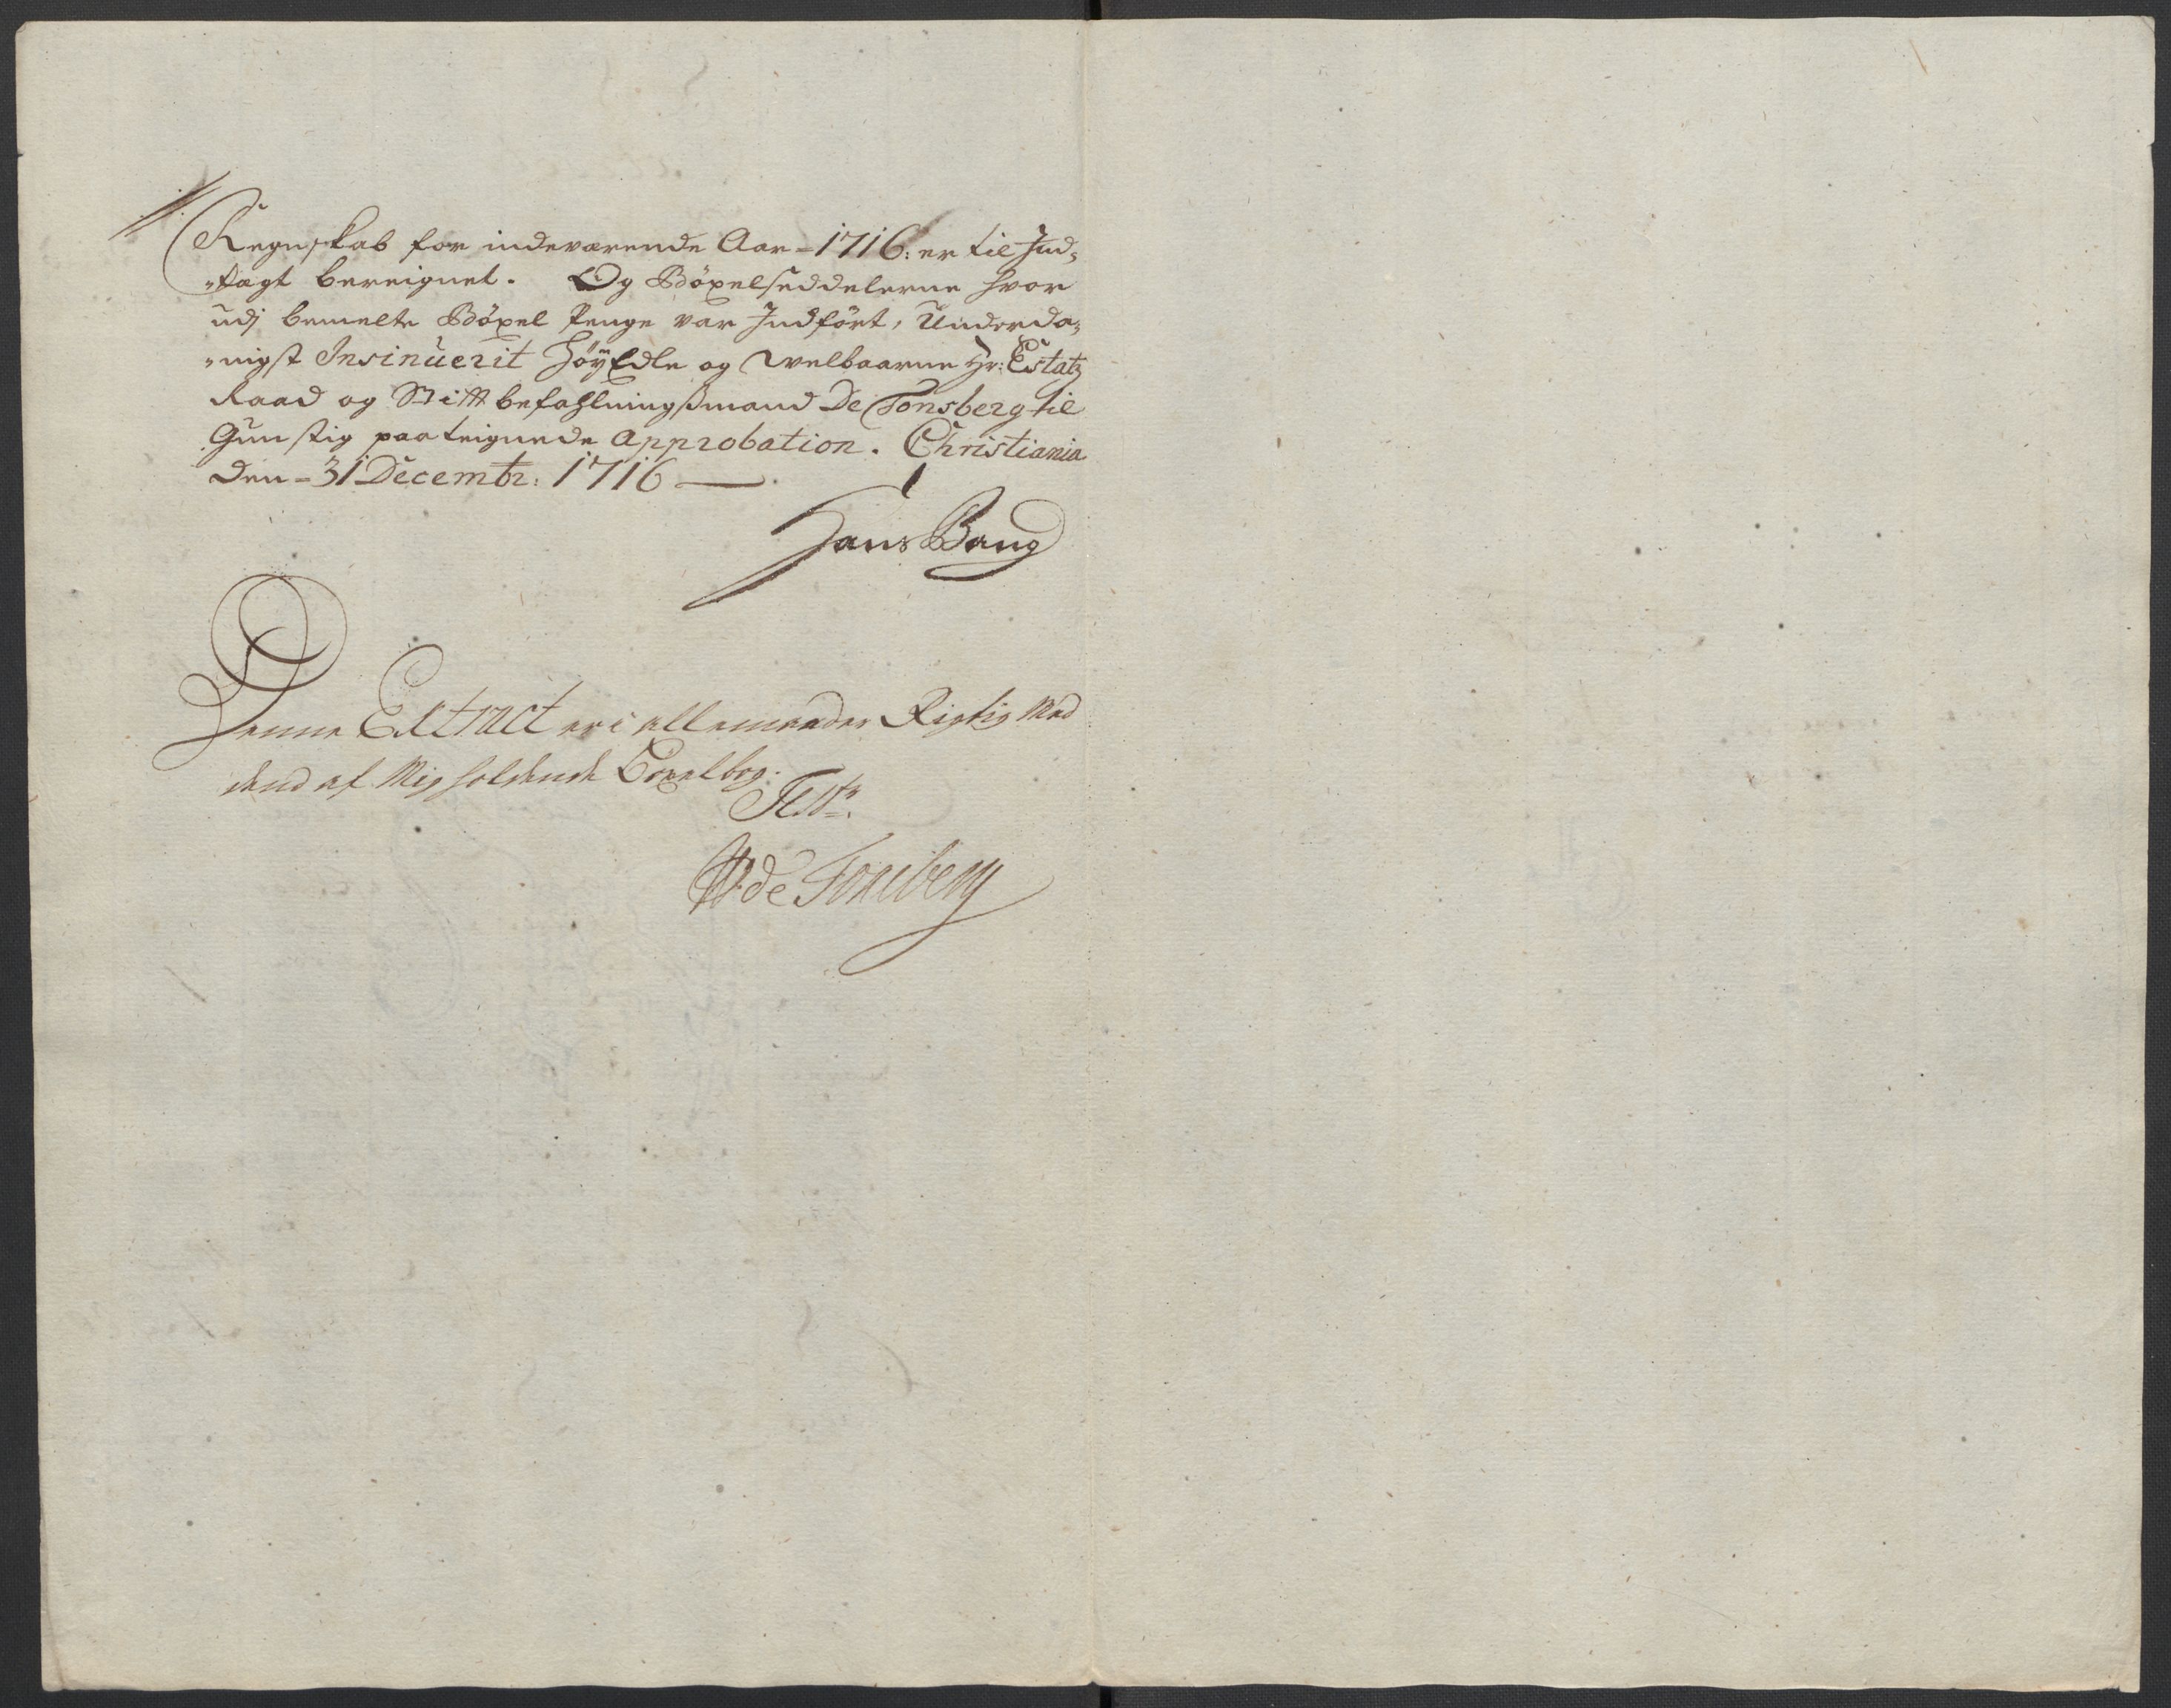 Regnskab for indeværende Aar - 1716: er til Ind-
-tægt bereignet. Og Böxelseddelerne hvor
udj bemelte Böxel Penge var Indført, Underda-
-nigst Insinuerit Höÿ Edle og Welbaarne Hr: Estatz
Raad og Stiftbefahlningsmand De Tonsberg til
Gunstig paateignede Approbation. Christiania
den - 31 Decembr: 1716 —
Hans Bang
Denne Extract er i alle maader Rigtig Med
dend af Mig holdende Böxelbog.
Test:
W de Tonsberg